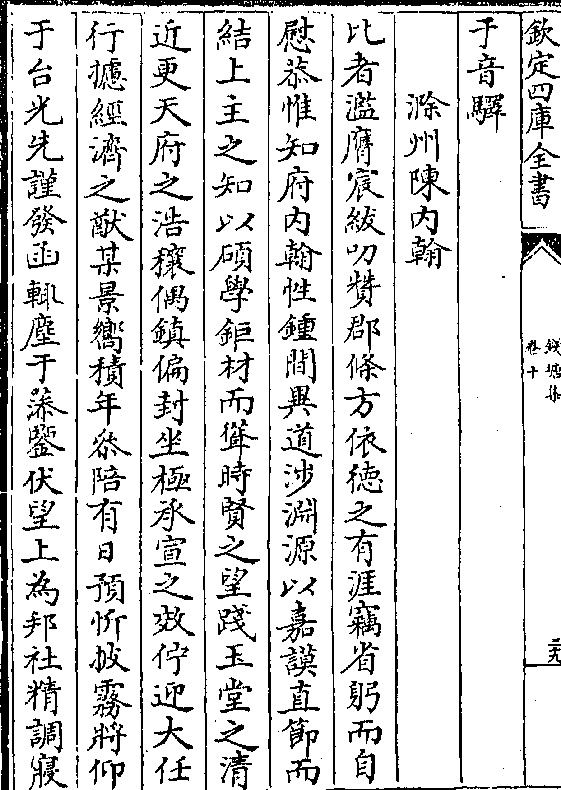 欽定四庫全書
錢塘集
卷十
二九
于音驛
滁州陳内翰
比者濫膺宸紱叨贊郡條方依徳之有涯竊省躬而自
慰恭惟知府内翰性鍾間異道渉淵源以嘉謨直節而
結上主之知以碩學鉅材而聳時賢之望踐玉堂之清
近更天府之浩穰偶鎮偏封坐極承宣之效佇迎大任
行攄經濟之猷某景嚮積年叅陪有日預忻披霧將仰
于台光先謹發函輒塵于藻鑒伏望上為邦社精調寢